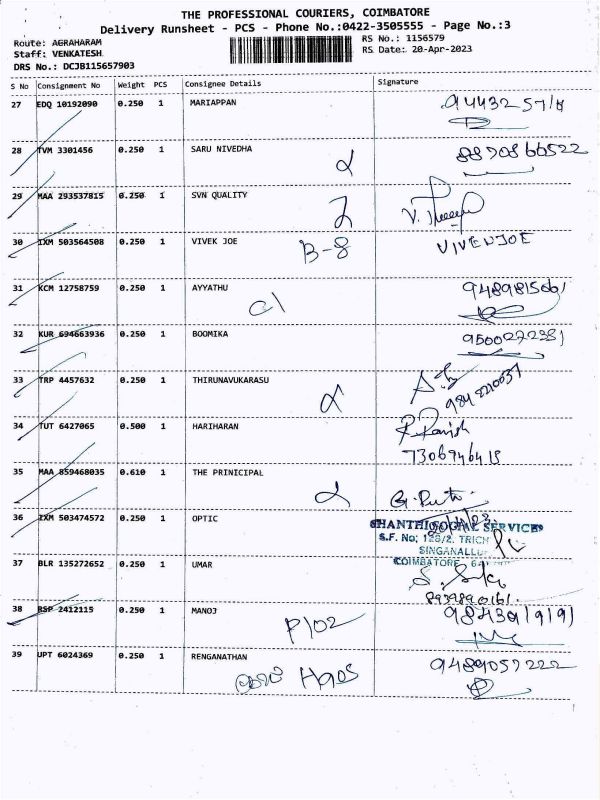 THE PROFESSIONAL COURIERS, COIMBATORE
Delivery Runsheet - PCS - Phone No.:0422-3505555 - Page No.:3
Route: AGRAHARAM
RS No.: 1156579
Staff: VENKATESH
RS Date: 20-Apr-2023
DRS No.: DCJB115657903
S No Consignment No Weight PCS Consignee Details Signature
27 EDQ 10192090 0.250 1 MARIAPPAN
28 TVM 3301456 0.250 1 SARU NIVEDHA 8870866522
29 MAA 293537815 0.250 1 SVN QUALITY
30 IXM 503564508 0.250 1 VIVEK JOE B-8 VIVEKJOE
31 KCM 12758759 0.250 1 AYYATHU 9489815061
32 KUR 694663936 0.250 1 BOOMIKA 9500272381
33 TRP 4457632 0.250 1 THIRUNAVUKARASU
34 TUT 6427065 0.500 1 HARIHARAN
7306946418
35 MAA 859468035 0.610 1 THE PRINICIPAL
36 IXM 503474572 0.250 1 OPTIC
SHANTHI SOCIAL SERVICES
S.F. No: 128/2, TRICH
SINGANALLU
COIMBATORE
37 BLR 135272652 0.250 1 UMAR
38 RSP 2412115 0.250 1 MANOJ P102
39 UPT 6024369 0.250 1 RENGANATHAN 9489057222